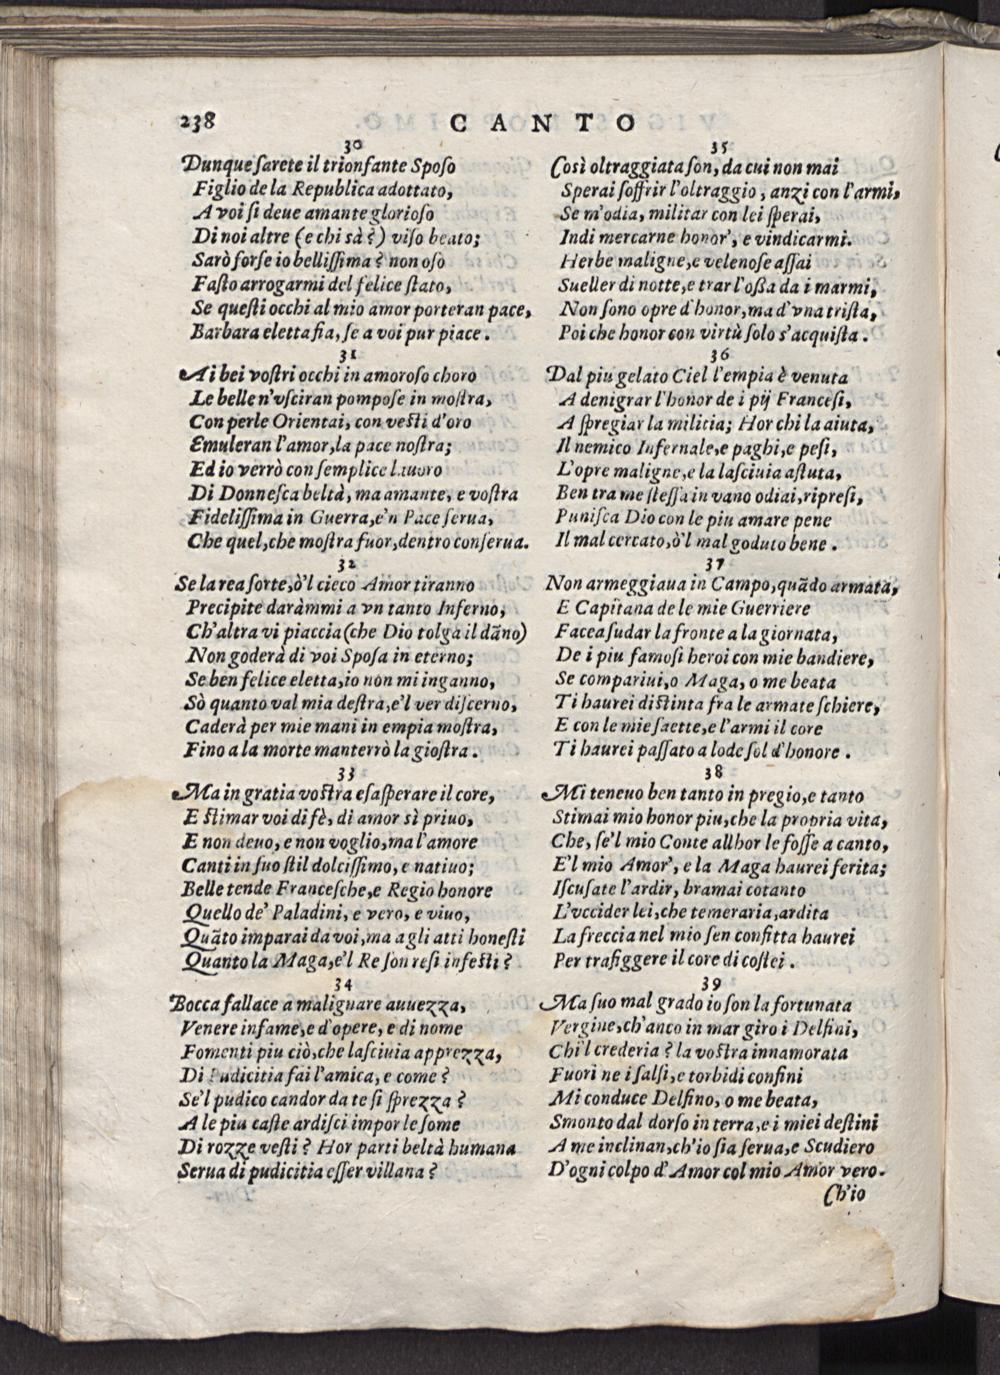 238 CANTO
30
Dunque ſarete il trionfante Spoſo
Figlio de la Republica adottato,
A voi ſi deue amante glorioſo
Di noi altre (e chi sà?) viſo beato;
Sarò forſe io belliſſima? non oſo
Faſto arrogarmi del felice ſtato,
Se queſti occhi al mio amor porteran pace,
Barbara eletta fia, ſe a voi pur piace.
31
Ai bei voſtri occhi in amoroſo choro
Le belle n'vſciran pompoſe in moſtra,
Con perle Orientai, con veſti d'oro
Emuleran l'amor, la pace noſtra;
Ed io verrò con ſemplice lauoro
Di Donneſca beltà, ma amante, e voſtra
Fideliſſima in Guerra, e'n Pace ſerua,
Che quel, che moſtra fuor, dentro conſerua.
32
Se la rea ſorte, ò'l cieco Amor tiranno
Precipite daràmmi a vn tanto Inferno,
Ch'altra vi piaccia (che Dio tolga il dãno)
Non goderà di voi Spoſa in eterno;
Se ben felice eletta, io non mi inganno,
Sò quanto val mia deſtra, e'l ver diſcerno,
Caderà per mie mani in empia moſtra,
Fino a la morte manterrò la gioſtra.
33
Ma in gratia voſtra eſaſperare il core,
E ſtimar voi di fè, di amor sì priuo,
E non deuo, e non voglio, ma l'amore
Canti in ſuo ſtil dolciſſimo, e natiuo;
Belle tende Franceſche, e Regio honore
Quello de' Paladini, e vero, e viuo,
Quãto imparai da voi, ma a gli atti honeſti
Quanto la Maga, e'l Re ſon reſi infeſti?
34
Bocca fallace a malignare auuezza,
Venere infame, e d'opere, e di nome
Fomenti piu ciò, che laſciuia apprezza,
Di Pudicitia fai l'amica, e come?
Se'l pudico candor da te ſi ſprezza?
A le piu caſte ardiſci impor le ſome
Di rozze veſti? Hor parti beltà humana
Serua di pudicitia eſſer villana?
35
Così oltraggiata ſon, da cui non mai
Sperai ſoffrir l'oltraggio, anzi con l'armi,
Se m'odia, militar con lei ſperai,
Indi mercarne honor', e vindicarmi.
Herbe maligne, e velenoſe aſſai
Sueller di notte, e trar l'oßa da i marmi,
Non ſono opre d'honor, ma d'vna triſta,
Poi che honor con virtù ſolo s'acquiſta.
36
Dal piu gelato Ciel l'empia è venuta
A denigrar l'honor de i pij Franceſi,
A ſpregiar la militia; Hor chi la aiuta,
Il nemico Infernale, e paghi, e peſi,
L'opre maligne, e la laſciuia aſtuta,
Ben tra me ſteſſa in vano odiai, ripreſi,
Puniſca Dio con le piu amare pene
Il mal cercato, ò'l mal goduto bene.
37
Non armeggiaua in Campo, quãdo armata,
E Capitana de le mie Guerriere
Facea ſudar la fronte a la giornata,
De i piu famoſi heroi con mie bandiere,
Se compariui, o Maga, o me beata
Ti haurei diſtinta fra le armate ſchiere,
E con le mie ſaette, e l'armi il core
Ti haurei paſſato a lode ſol d'honore.
38
Mi teneuo ben tanto in pregio, e tanto
Stimai mio honor piu, che la propria vita,
Che, ſe'l mio Conte allhor le foſſe a canto,
E'l mio Amor', e la Maga haurei ferita;
Iſcuſate l'ardir, bramai cotanto
L'vccider lei, che temeraria, ardita
La freccia nel mio ſen confitta haurei
Per trafiggere il core di coſtei.
39
Ma ſuo mal grado io ſon la fortunata
Vergine, ch'anco in mar giro i Delfini,
Chi'l crederia? la voſtra innamorata
Fuori ne i ſalſi, e torbidi confini
Mi conduce Delfino, o me beata,
Smonto dal dorſo in terra, e i miei deſtini
A me inclinan, ch'io ſia ſerua, e Scudiero
D'ogni colpo d'Amor col mio Amor vero.
Ch'io